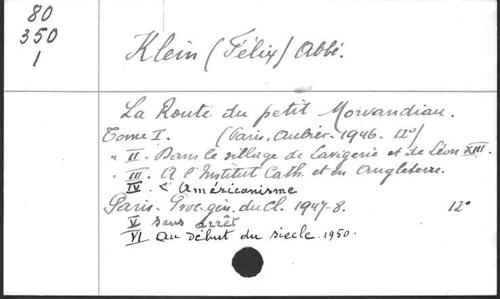 80
350
1
Klein (Félix) Abbé.
La Route du petit Morvandiau.
Tome I. (Paris, Aubier. 1946. 12°)
" II. Dans le sillage de Lavigerie et de Léon XIII.
" III. A l'Institut Cath. et en Angleterre.
IV. L'Américanisme
Paris. Proc. gén. du Cl. 1947-8. 12°
V sans arrêt
VI au début du siecle. 1950.